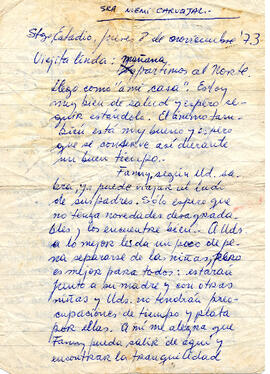 SRA NIEMI CARVAJAL.-
Stgo, Estadio, jueves 8 de noviembre '73
Viejita linda: mañana
partimos al Norte.
Llego como "a mi casa". Estoy
muy bien de salud y espero se-
guir estandolo. El ánimo tam-
bién está muy bueno y espero
que se conserve así durante
un buen tiempo.
Fanny, según Ud. sa-
brá, ya puede viajar al lado
de sus padres. Sólo espero que
no tenga novedades desagrada-
bles y los encuentre bien. A Uds
a lo mejor les da un poco de pe-
na separarse de las niñas, pero
es mejor para todos: estarán
junto a su madre y con otras
niñas y Uds. no tendrán preo-
cupaciones de tiempo y plata
por ellas. A mí me alegra que
Fanny pueda salir de aquí y
encontrar la tranquilidad